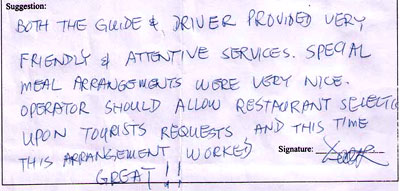 Suggestion:
BOTH THE GUIDE & DRIVER PROVIDED VERY
FRIENDLY & ATTENTIVE SERVICES. SPECIAL
MEAL ARRANGEMENTS WERE VERY NICE.
OPERATOR SHOULD ALLOW RESTAURANT SELECTIO
UPON TOURISTS REQUESTS AND THIS TIME
THIS ARRANGEMENT WORKED Signature:
GREAT!!